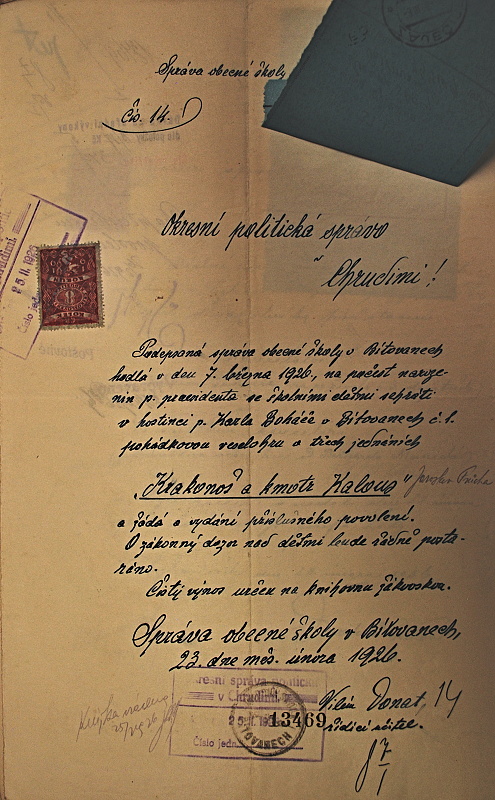 Správa obecné školy
Čís. 14.
Okresní politická správo
v Chrudimi!
Podepsaná správa obecné školy v Bítovanech
hodlá v den 7. března 1926, na počest naroze-
nin p. prezidenta se školními dětmi sehráti
v hostinci p. Karla Boháče v Bítovanech č. 1.
pohádkovou veselohru o třech jednáních
„Krakonoš a kmotr Kalous"
a žádá o vydání příslušného povolení.
O zákonný dozor nad dětmi bude řádně posta-
ráno.
Čistý výnos určen na knihovnu žákovskou.
Správa obecné školy v Bítovanech,
23. dne měs. února 1926.
Vilém Donat,
řídící učitel.
v Chrudimi
25.II.
13469
Číslo jedn.
BÍTOVANECH